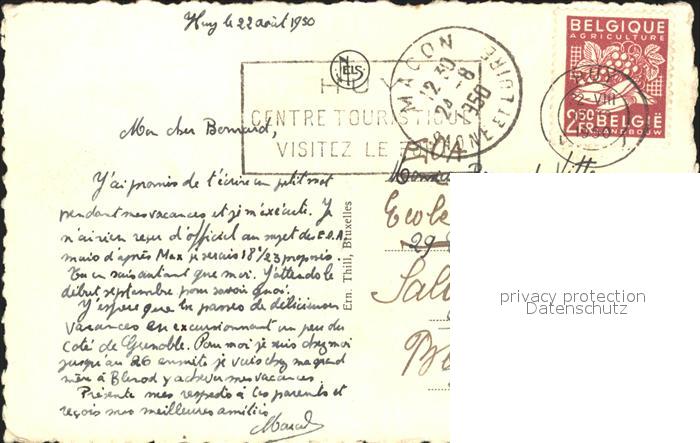 Huy le 22 août 1950
BELGIQUE
AGRICULTURE
2F50 BELGIË
LANDBOUW
HUY
VIII
NELS
MACON
12 30
24 -8
1950
SAONE ET LOIRE
HUY
CENTRE TOURISTIQUE
VISITEZ LE FORT
Mon cher Bernard,
J'ai promis de t'écrire un petit mot
pendant mes vacances et je m'exécute. Je
n'ai rien reçu d'officiel au sujet des E.O.A
mais d'après Max je serais 18°/23 proposés.
Tu en sais autant que moi. J'attends le
début septembre pour savoir quoi.
J'espère que tu passes de délicieuses
vacances en excursionnant un peu du
coté de Grenoble. Pour moi je suis chez moi
jusqu'au 26 ensuite je vais chez ma grand
mère à Blérod y achever mes vacances.
Présente mes respects à tes parents et
reçois mes meilleures amitiés
Marcel
Ern. Thill, Bruxelles
Ecole
29
privacy protection
Datenschutz